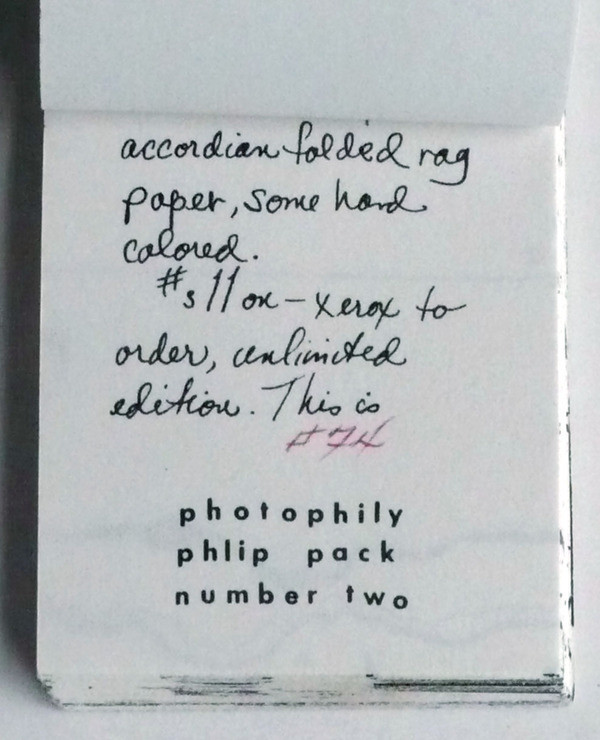 accordian folded rag
paper, some hand
colored.
#s 11 on - xerox to
order, unlimited
edition. This is
#74
photophily
phlip pack
number two